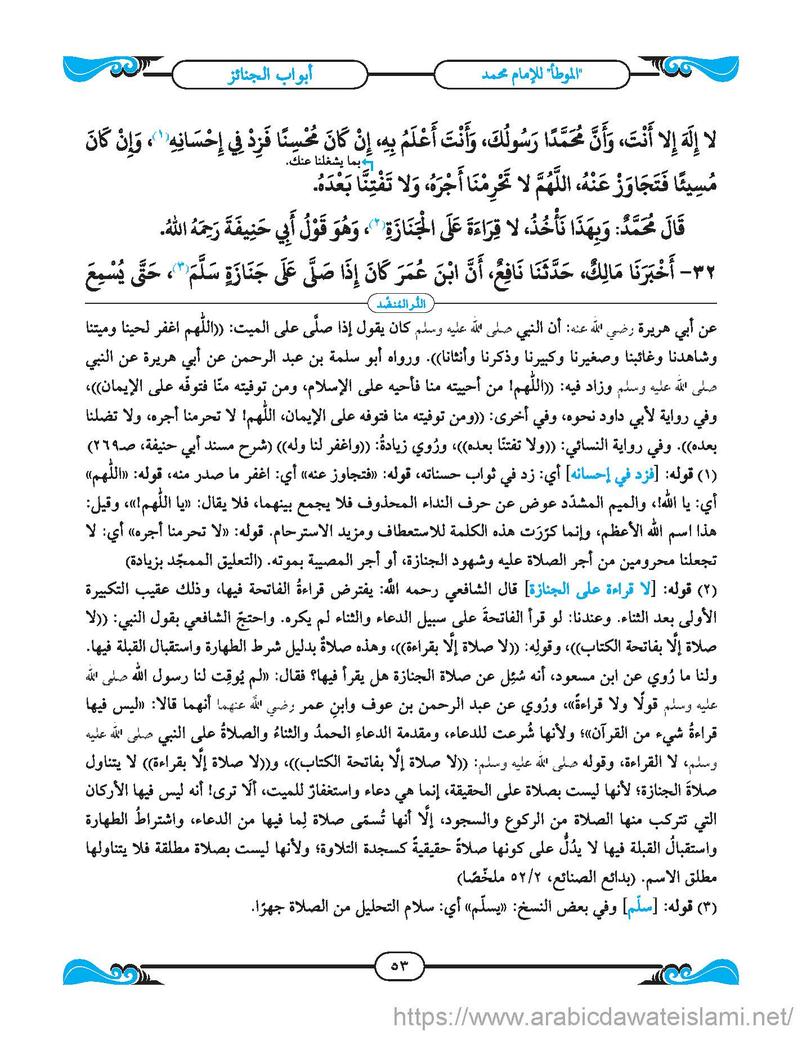 "الموطأ" للإمام محمد
أبواب الجنائز
لا إِلَهَ إِلا أَنْتَ، وَأَنَّ مُحَمَّدًا رَسُولُكَ، وَأَنْتَ أَعْلَمُ بِهِ، إِنْ كَانَ مُحْسِنًا فَزِدْ فِي إِحْسَانِهِ(١)، وَإِنْ كَانَ
بما يشغلنا عنك.
مُسِيئًا فَتَجَاوَزْ عَنْهُ، اللَّهُمَّ لا تَحْرِمْنَا أَجْرَهُ، وَلا تَفْتِنَّا بَعْدَهُ.
قَالَ مُحَمَّدٌ: وَبِهَذَا نَأْخُذُ، لا قِرَاءَةَ عَلَى الْجَنَازَةِ(٢)، وَهُوَ قَوْلُ أَبِي حَنِيفَةَ رَحِمَهُ اللهُ.
٣٢- أَخْبَرَنَا مَالِكٌ، حَدَّثَنَا نَافِعٌ، أَنَّ ابْنَ عُمَرَ كَانَ إِذَا صَلَّى عَلَى جَنَازَةٍ سَلَّمَ(٣)، حَتَّى يُسْمِعَ
الدُّر المُنضَّد
عن أبي هريرة رضي الله عنه: أن النبي صلى الله عليه وسلم كان يقول إذا صلَّى على الميت: ((اللّٰهم اغفر لحينا وميتنا
وشاهدنا وغائبنا وصغيرنا وكبيرنا وذكرنا وأنثانا)). ورواه أبو سلمة بن عبد الرحمن عن أبي هريرة عن النبي
صلى الله عليه وسلم وزاد فيه: ((اللّٰهم! من أحييته منا فأحيه على الإسلام، ومن توفيته منّا فتوفّه على الإيمان))،
وفي رواية لأبي داود نحوه، وفي أخرى: ((ومن توفيته منا فتوفه على الإيمان، اللّٰهم! لا تحرمنا أجره، ولا تضلنا
بعده)). وفي رواية النسائي: ((ولا تفتنّا بعده))، ورُوي زيادةُ: ((واغفر لنا وله)) (شرح مسند أبي حنيفة، صـ٢٦٩)
(١) قوله: [فزد في إحسانه] أي: زد في ثواب حسناته، قوله: «فتجاوز عنه» أي: اغفر ما صدر منه، قوله: «اللّٰهم»
أي: يا الله!، والميم المشدّد عوض عن حرف النداء المحذوف فلا يجمع بينهما، فلا يقال: «يا اللّٰهم!»، وقيل:
هذا اسم الله الأعظم، وإنما كرّرَت هذه الكلمة للاستعطاف ومزيد الاسترحام. قوله: «لا تحرمنا أجره» أي: لا
تجعلنا محرومين من أجر الصلاة عليه وشهود الجنازة، أو أجر المصيبة بموته. (التعليق الممجّد بزيادة)
(٢) قوله: [لا قراءة على الجنازة] قال الشافعي رحمه الله: يفترض قراءةُ الفاتحة فيها، وذلك عقيب التكبيرة
الأولى بعد الثناء. وعندنا: لو قرأ الفاتحةَ على سبيل الدعاء والثناء لم يكره. واحتجّ الشافعي بقول النبي: ((لا
صلاة إلّا بفاتحة الكتاب))، وقولِه: ((لا صلاة إلّا بقراءة))، وهذه صلاةٌ بدليل شرط الطهارة واستقبال القبلة فيها.
ولنا ما رُوي عن ابن مسعود، أنه سُئِل عن صلاة الجنازة هل يقرأ فيها؟ فقال: «لم يُوقِت لنا رسول الله صلى الله
عليه وسلم قولًا ولا قراءةً»، ورُوي عن عبد الرحمن بن عوف وابنِ عمر رضي الله عنهما أنهما قالا: «ليس فيها
قراءةُ شيء من القرآن»؛ ولأنها شُرعت للدعاء، ومقدمة الدعاءِ الحمدُ والثناءُ والصلاةُ على النبي صلى الله عليه
وسلم، لا القراءة، وقوله صلى الله عليه وسلم: ((لا صلاة إلّا بفاتحة الكتاب))، و((لا صلاة إلّا بقراءة)) لا يتناول
صلاةَ الجنازة؛ لأنها ليست بصلاة على الحقيقة، إنما هي دعاء واستغفارٌ للميت، ألَا ترى! أنه ليس فيها الأركان
التي تتركب منها الصلاة من الركوع والسجود، إلّا أنها تُسمّى صلاة لِما فيها من الدعاء، واشتراطُ الطهارة
واستقبالُ القبلة فيها لا يدُلُّ على كونها صلاةً حقيقيةً كسجدة التلاوة؛ ولأنها ليست بصلاة مطلقة فلا يتناولها
مطلق الاسم. (بدائع الصنائع، ٥٢/٢ ملخّصًا)
(٣) قوله: [سلّم] وفي بعض النسخ: «يسلّم» أي: سلام التحليل من الصلاة جهرًا.
٥٣
https://www.arabicdawateislami.net/